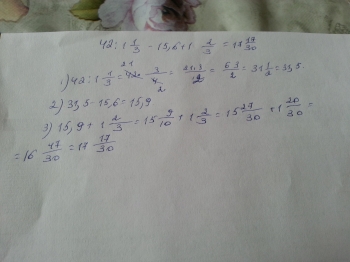 42:1 1/3 - 15,6+1 2/3 = 17 17/30
21
1) 42:1 1/3 = 42 · 3/4 = 21·3/2 = 63/2 = 31 1/2 = 31,5.
2
2) 31,5-15,6=15,9
3) 15,9 + 1 2/3 = 15 9/10 + 1 2/3 = 15 27/30 + 1 20/30 =
= 16 47/30 = 17 17/30